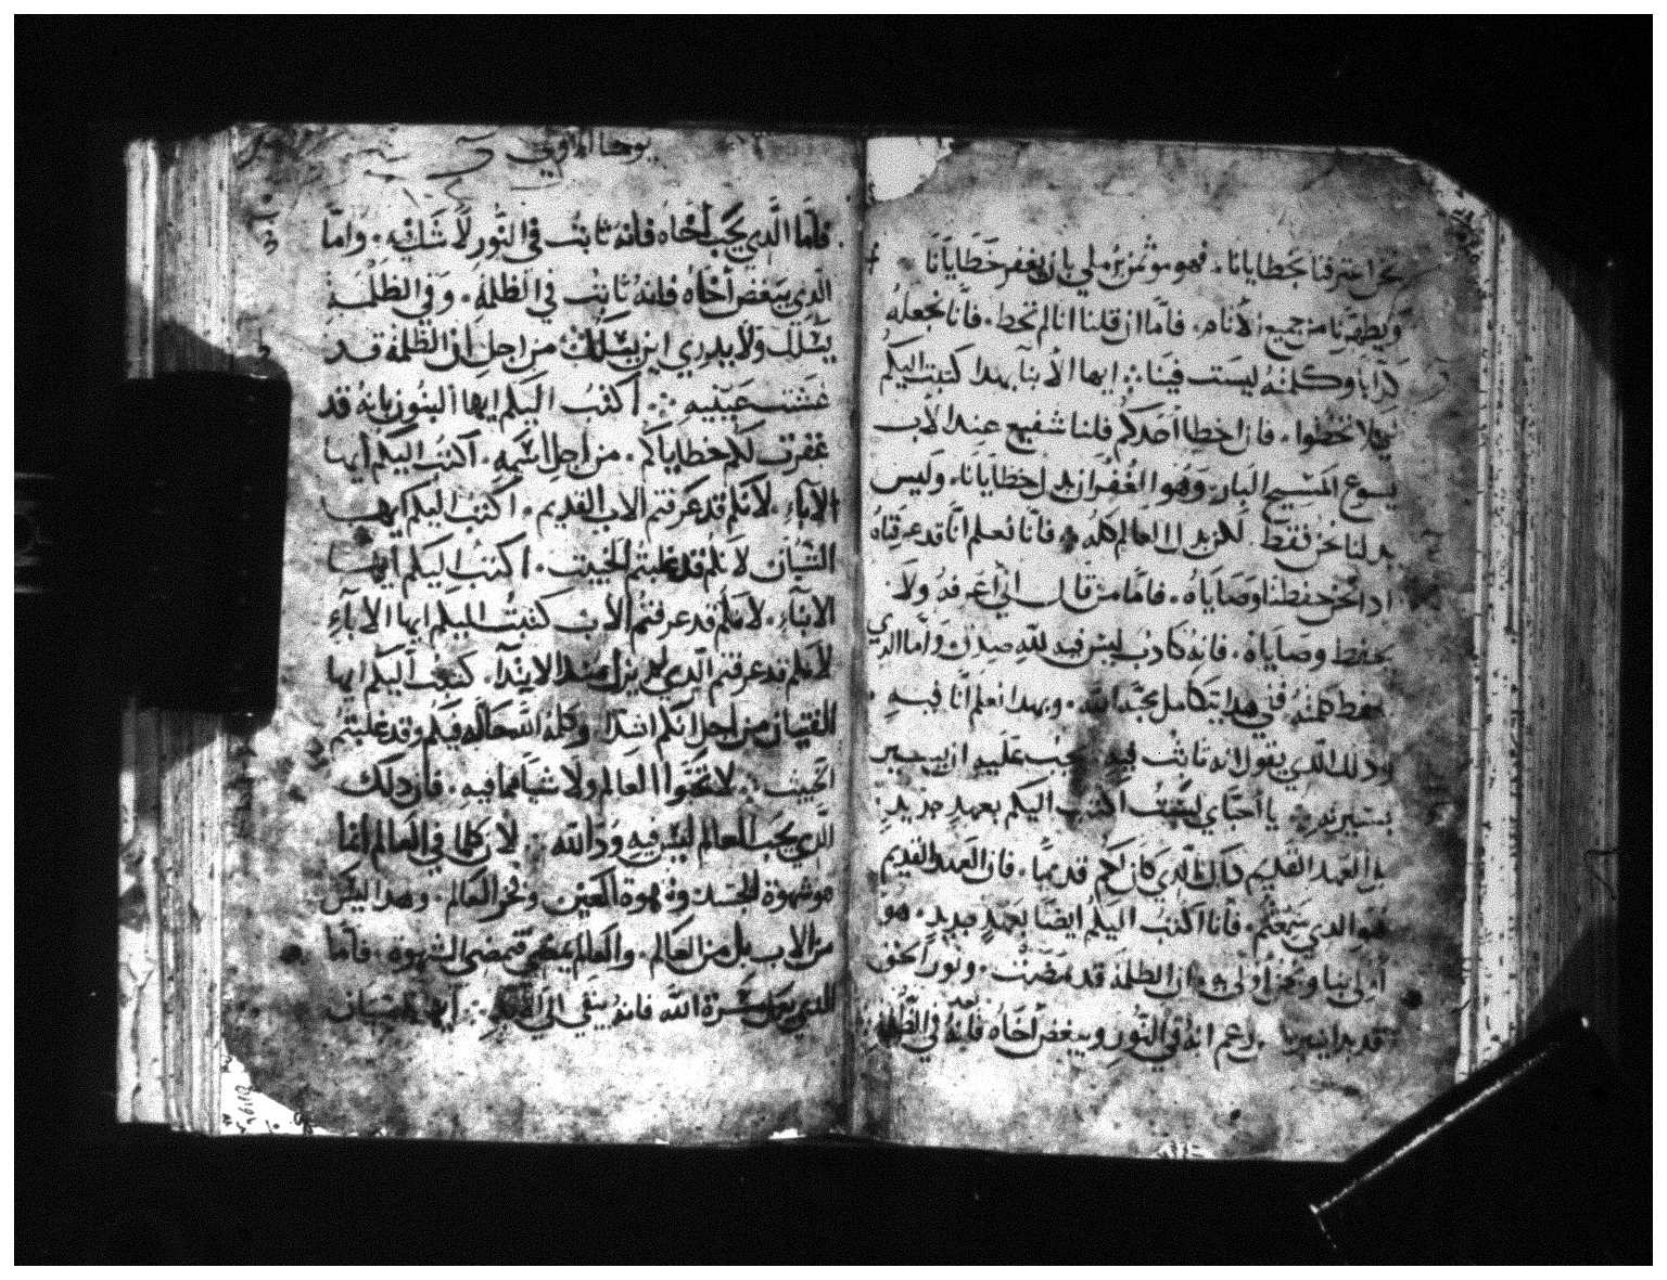 نحن اعترفنا بخطايانا. فهو مومن مملي بان يغفر خطايانا
ويطهرنا من جميع الاثام. فاما ان قلنا انا لم نخط. فانا نجعله
كدابا وكلمته ليست فينا ايها الابنا بهدا كتبت اليكم
لكيلا تخطوا. فان اخطا احدكم فلنا شفيع عند الاب
يسوع المسيح البار. وهو الغفران بدل خطايانا. وليس
بدلنا نحن فقط. لكن بدل العالم كله فانا نعلم انا قد عرفناه
ادا نحن حفظنا وصاياه. فاما من قال اني اعرفه ولا
يحفظ وصاياه. فانه كادب ليس فيه لله صدق واما الدي
يحفظ كلمته ففي هدا يتكامل محبة الله. وبهدا نعلم انا فيه
ودلك الدي يقول انه ثابت فيه يجب عليه ان يسير
بسيرته يا احباي لست اكتب اليكم بعهد جديد
بل العهد القديم دلك الدي كان لكم قديما. فان العهد القديم
هو الدي سمعتم. فانا اكتب اليكم ايضا بعهد جديد. هو
اولى بنا ونحن اولى به. ان الظلمة قد مضت. ونور الحق
قد بدا يزعم انه في النور ويبغض اخاه فانه بعد في الظلمة
يوحنا
فاما الدي يحب اخاه فانه ثابت في النور لا شك فيه. واما
الدي يبغض اخاه فانه ثابت في الظلمة. وفي الظلمة
يسلك ولا يدري اين يسلك من اجل ان الظلمة قد
غشت عينيه اكتب اليكم ايها البنون بانه قد
غفرت لكم خطاياكم. من اجل اسمه. اكتب اليكم ايها
الاباء. لانكم قد عرفتم الاب القديم. اكتب اليكم ايها
الشبان لانكم قد غلبتم الخبيث. اكتب اليكم ايها
الابناء. لانكم قد عرفتم الاب كتبت اليكم ايها الاباء
لانكم قد عرفتم الدي لم يزل مند الابتدا. كتبت اليكم ايها
الفتيان من اجل انكم اشدا وكلمة الله حالة فيكم وقد غلبتم
الخبيث لا تحبوا العالم ولا شيا مما فيه. فان دلك
الدي يحب العالم ليس فيه ود الله لان كلما في العالم انما
هو شهوة الجسد وشهوة العين وفخر العالم. وهدا ليس
من الاب بل من العالم. والعالم يمضي وتمضي الشهوة. فاما
الدي يعمل مسرة الله فانه يبقي الي الابد ايها الفتيان